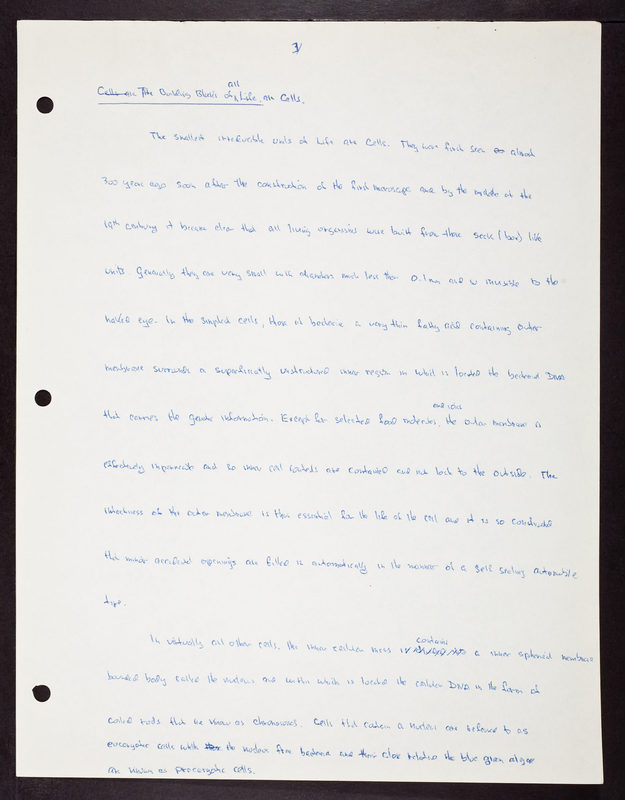 3/
all
Cells are The Building Blocks of Life, are Cells.
The smallest irreducible units of Life are Cells. They were first seen almost
300 years ago soon after the construction of the first microscope and by the middle of the
19th century it became clear that all living organisms were built from these (box) like
units. Generally they are very small with diameters much less than 0.1 mm and so invisible to the
naked eye. In the simplest cells, those of bacteria a very thin fatty acid containing outer
membrane surrounds a superficially unstructured inner region in which is located the bacterial DNA
and ions
that carries the genetic information. Except for selected food molecules, the outer membrane is
effectively impermeable and so inner cell contents are contained and not lost to the outside. The
intactness of the outer membrane is thus essential for the life of the cell and it is so constructed
that minor accidental openings are filled in automatically in the manner of a self sealing automobile
contains
In virtually all other cells, the inner cellular mass a inner spherical membrane
bounded body called the nucleus and within which is located the cellular DNA in the form of
coiled rods that we know as chromosomes. Cells that contain a nucleus are referred to as
eucaryotic cells while the nucleus free bacteria and their close relative the blue green algae
are known as procaryotic cells.